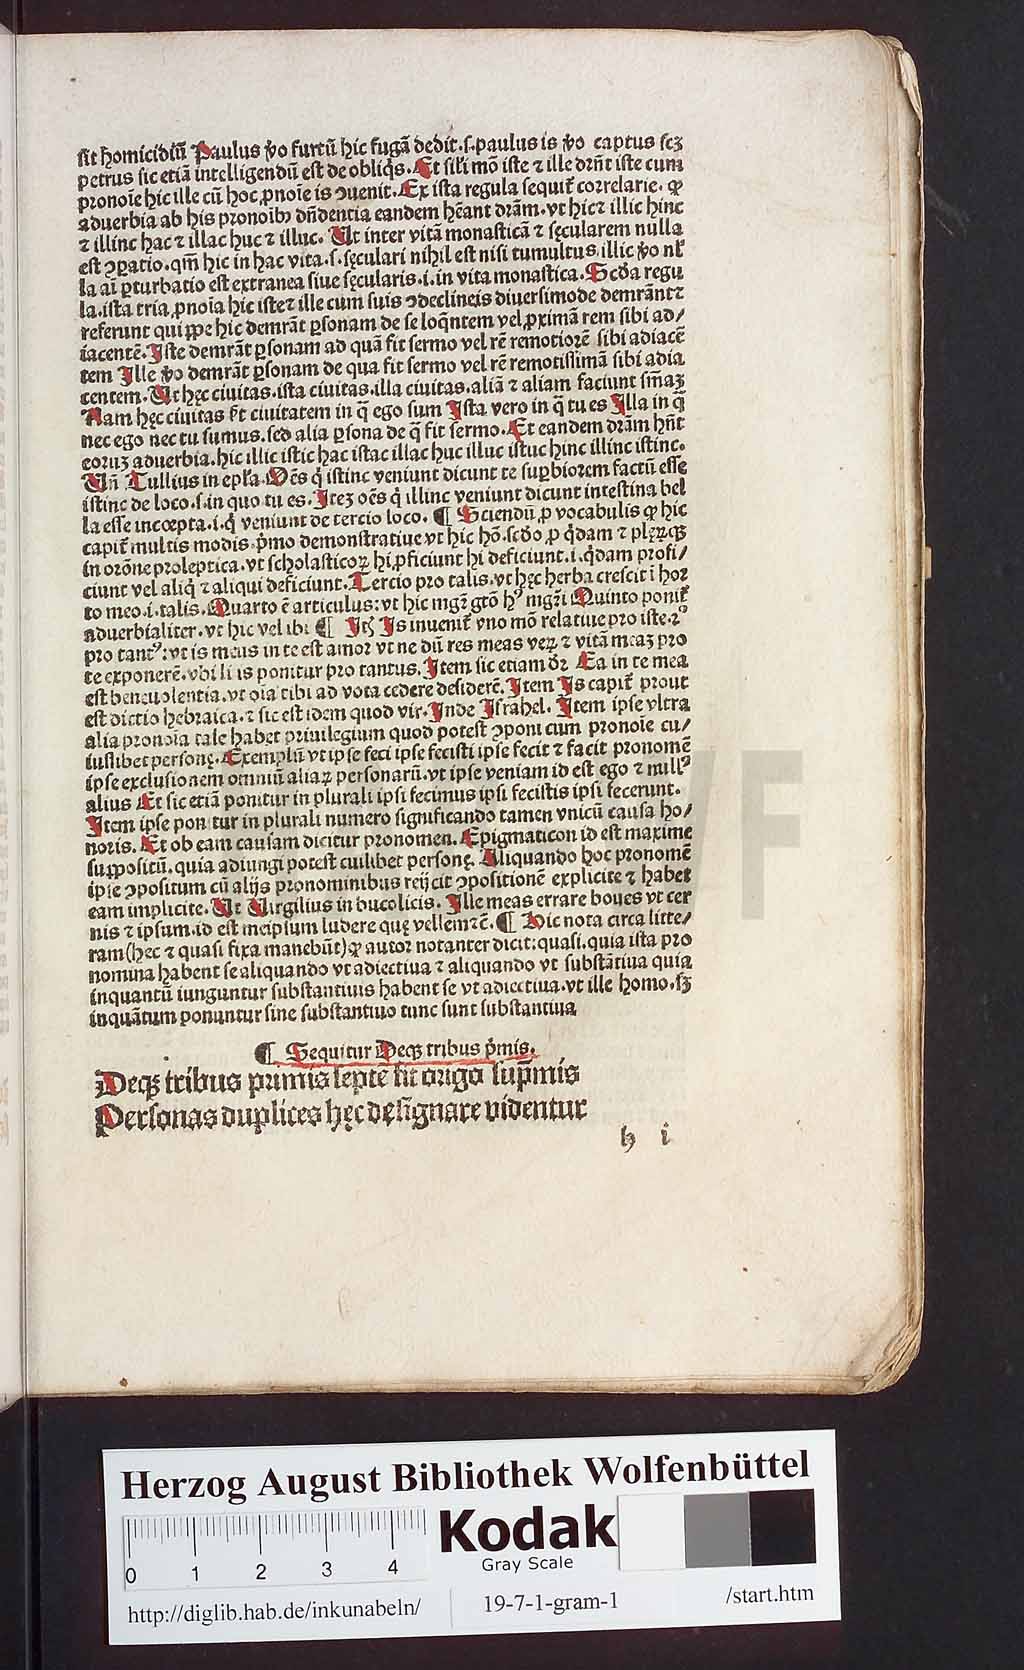 sit homicidiū Paulus ꝟo furtū hic fugā dedit .s. paulus is ꝟo captus scꝫ
petrus sic etiā intelligendū est de obliq̇s. Et sili mō iste ⁊ ille dr̄nt iste cum
pronoīe hic ille cū hoc ꝓnoīe is ꝯuenit. Ex ista regula sequit᷑ correlarie. ꝙ
aduerbia ab his pronoībꝰ dn̄dentia eandem hēant drām. vt hic ⁊ illic hinc
⁊ illinc hac ⁊ illac huc ⁊ illuc. Ut inter vitā monasticā ⁊ sęcularem nulla
est ꝯꝑatio. qm̄ hic in hac vita .s. sęculari nihil est nisi tumultus. illic ꝟo nł
la aī ꝑturbatio est extranea siue sęcularis .i. in vita monastica. Scd̄a regu
la. ista tria ꝓnoīa hic iste ⁊ ille cum suis ꝯdeclineis diuersimode demrānt ⁊
referunt qui ꝓpe hic demrāt ꝑsonam de se loq̄ntem vel ꝓximā rem sibi ad/
iacentē. Iste demrāt ꝑsonam ad quā fit sermo vel rē remotiorē sibi adiacē
tem Ille ꝟo demrāt ꝑsonam de qua fit sermo vel rē remotissimā sibi adia
centem. Ut hęc ciuitas. ista ciuitas. illa ciuitas. aliā ⁊ aliam faciunt sn̄iaꝫ
Nam hęc ciuitas ē ciuitatem in q̄ ego sum Ista vero in q̄ tu es Illa in q̄
nec ego nec tu sumus. sed alia ꝑsona de q̄ fit sermo. Et eandem drām hn̄t
eoruꝫ aduerbia. hic illic istic hac istac illac huc illuc istuc hinc illinc istinc.
Un̄ Tullius in epła. Oēs q̇ istinc veniunt dicunt te suꝑbiorem factū esse
istinc de loco .s. in quo tu es. Iteꝫ oēs q̇ illinc veniunt dicunt intestina bel
la esse incœpta .i. q̇ veniunt de tercio loco. ¶ Sciendū ꝓ vocabulis ꝙ hic
capit᷑ multis modis. p̄mo demonstratiue vt hic hō. scd̄o ꝓ q̇dam ⁊ pleꝝqꝫ
in orōne proleptica. vt scholasticoꝝ hi ꝓficiunt hi deficiunt .i. q̇dam profi/
ciunt vel aliq̇ ⁊ aliqui deficiunt. Tercio pro talis. vt hęc herba crescit ī hor
to meo .i. talis. Quarto ē articulus: vt hic mgr̄ gtō hꝰ mgr̄i Quinto ponit᷑
aduerbialiter. vt hic vel ibi ¶ Itꝫ Is inuenit᷑ vno mō relatiue pro iste. 2º
pro tantꝰ: vt is meus in te est amor vt ne dū res meas veꝝ ⁊ vitā meaꝫ pro
te exponerē. vbi li is ponitur pro tantus. Item sic etiam dr̄ Ea in te mea
est beneuolentia. vt oīa tibi ad vota cedere desiderē. Item Is capit᷑ prout
est dictio hebraica. ⁊ sic est idem quod vir. Inde Israhel. Item ipse vltra
alia pronoīa tale habet priuilegium quod potest ꝯponi cum pronoīe cu/
iuslibet personę. Exemplū vt ipse feci ipse fecisti ipse fecit ⁊ facit pronomē
ipse exclusionem omniū aliaꝝ personarū. vt ipse veniam id est ego ⁊ nullꝰ
alius Et sic etiā ponitur in plurali ipsi fecimus ipsi fecistis ipsi fecerunt.
Item ipse ponitur in plurali numero significando tamen vnicū causa ho/
noris. Et ob eam causam dicitur pronomen. Epigmaticon id est maxime
suppositū. quia adiungi potest cuilibet personę. Aliquando hoc pronomē
ipse ꝯpositum cū alijs pronominibus reijcit ꝯpositionē explicite ⁊ habet
eam implicite. Ut Virgilius in bucolicis. Ille meas errare boues vt cer
nis ⁊ ipsum. id est meipsum ludere quę vellem ⁊cē. ¶ Hic nota circa litte/
ram (hec ⁊ quasi fixa manebūt) ꝙ autor notanter dicit: quasi. quia ista pro
nomina habent se aliquando vt adiectiua ⁊ aliquando vt substātiua quia
inquantū iunguntur substantiuis habent se vt adiectiua. vt ille homo. sꝫ
inquātum ponuntur sine substantiuo tunc sunt substantiua
¶ Sequitur Deqꝫ tribus p̄mis.
Deqꝫ tribus primis septē fit origo sup̄mis
Personas duplices hęc designare videntur
h i
Herzog August Bibliothek Wolfenbüttel
Kodak
Gray Scale
0 1 2 3 4
http://diglib.hab.de/inkunabeln/ 19-7-1-gram-1 /start.htm